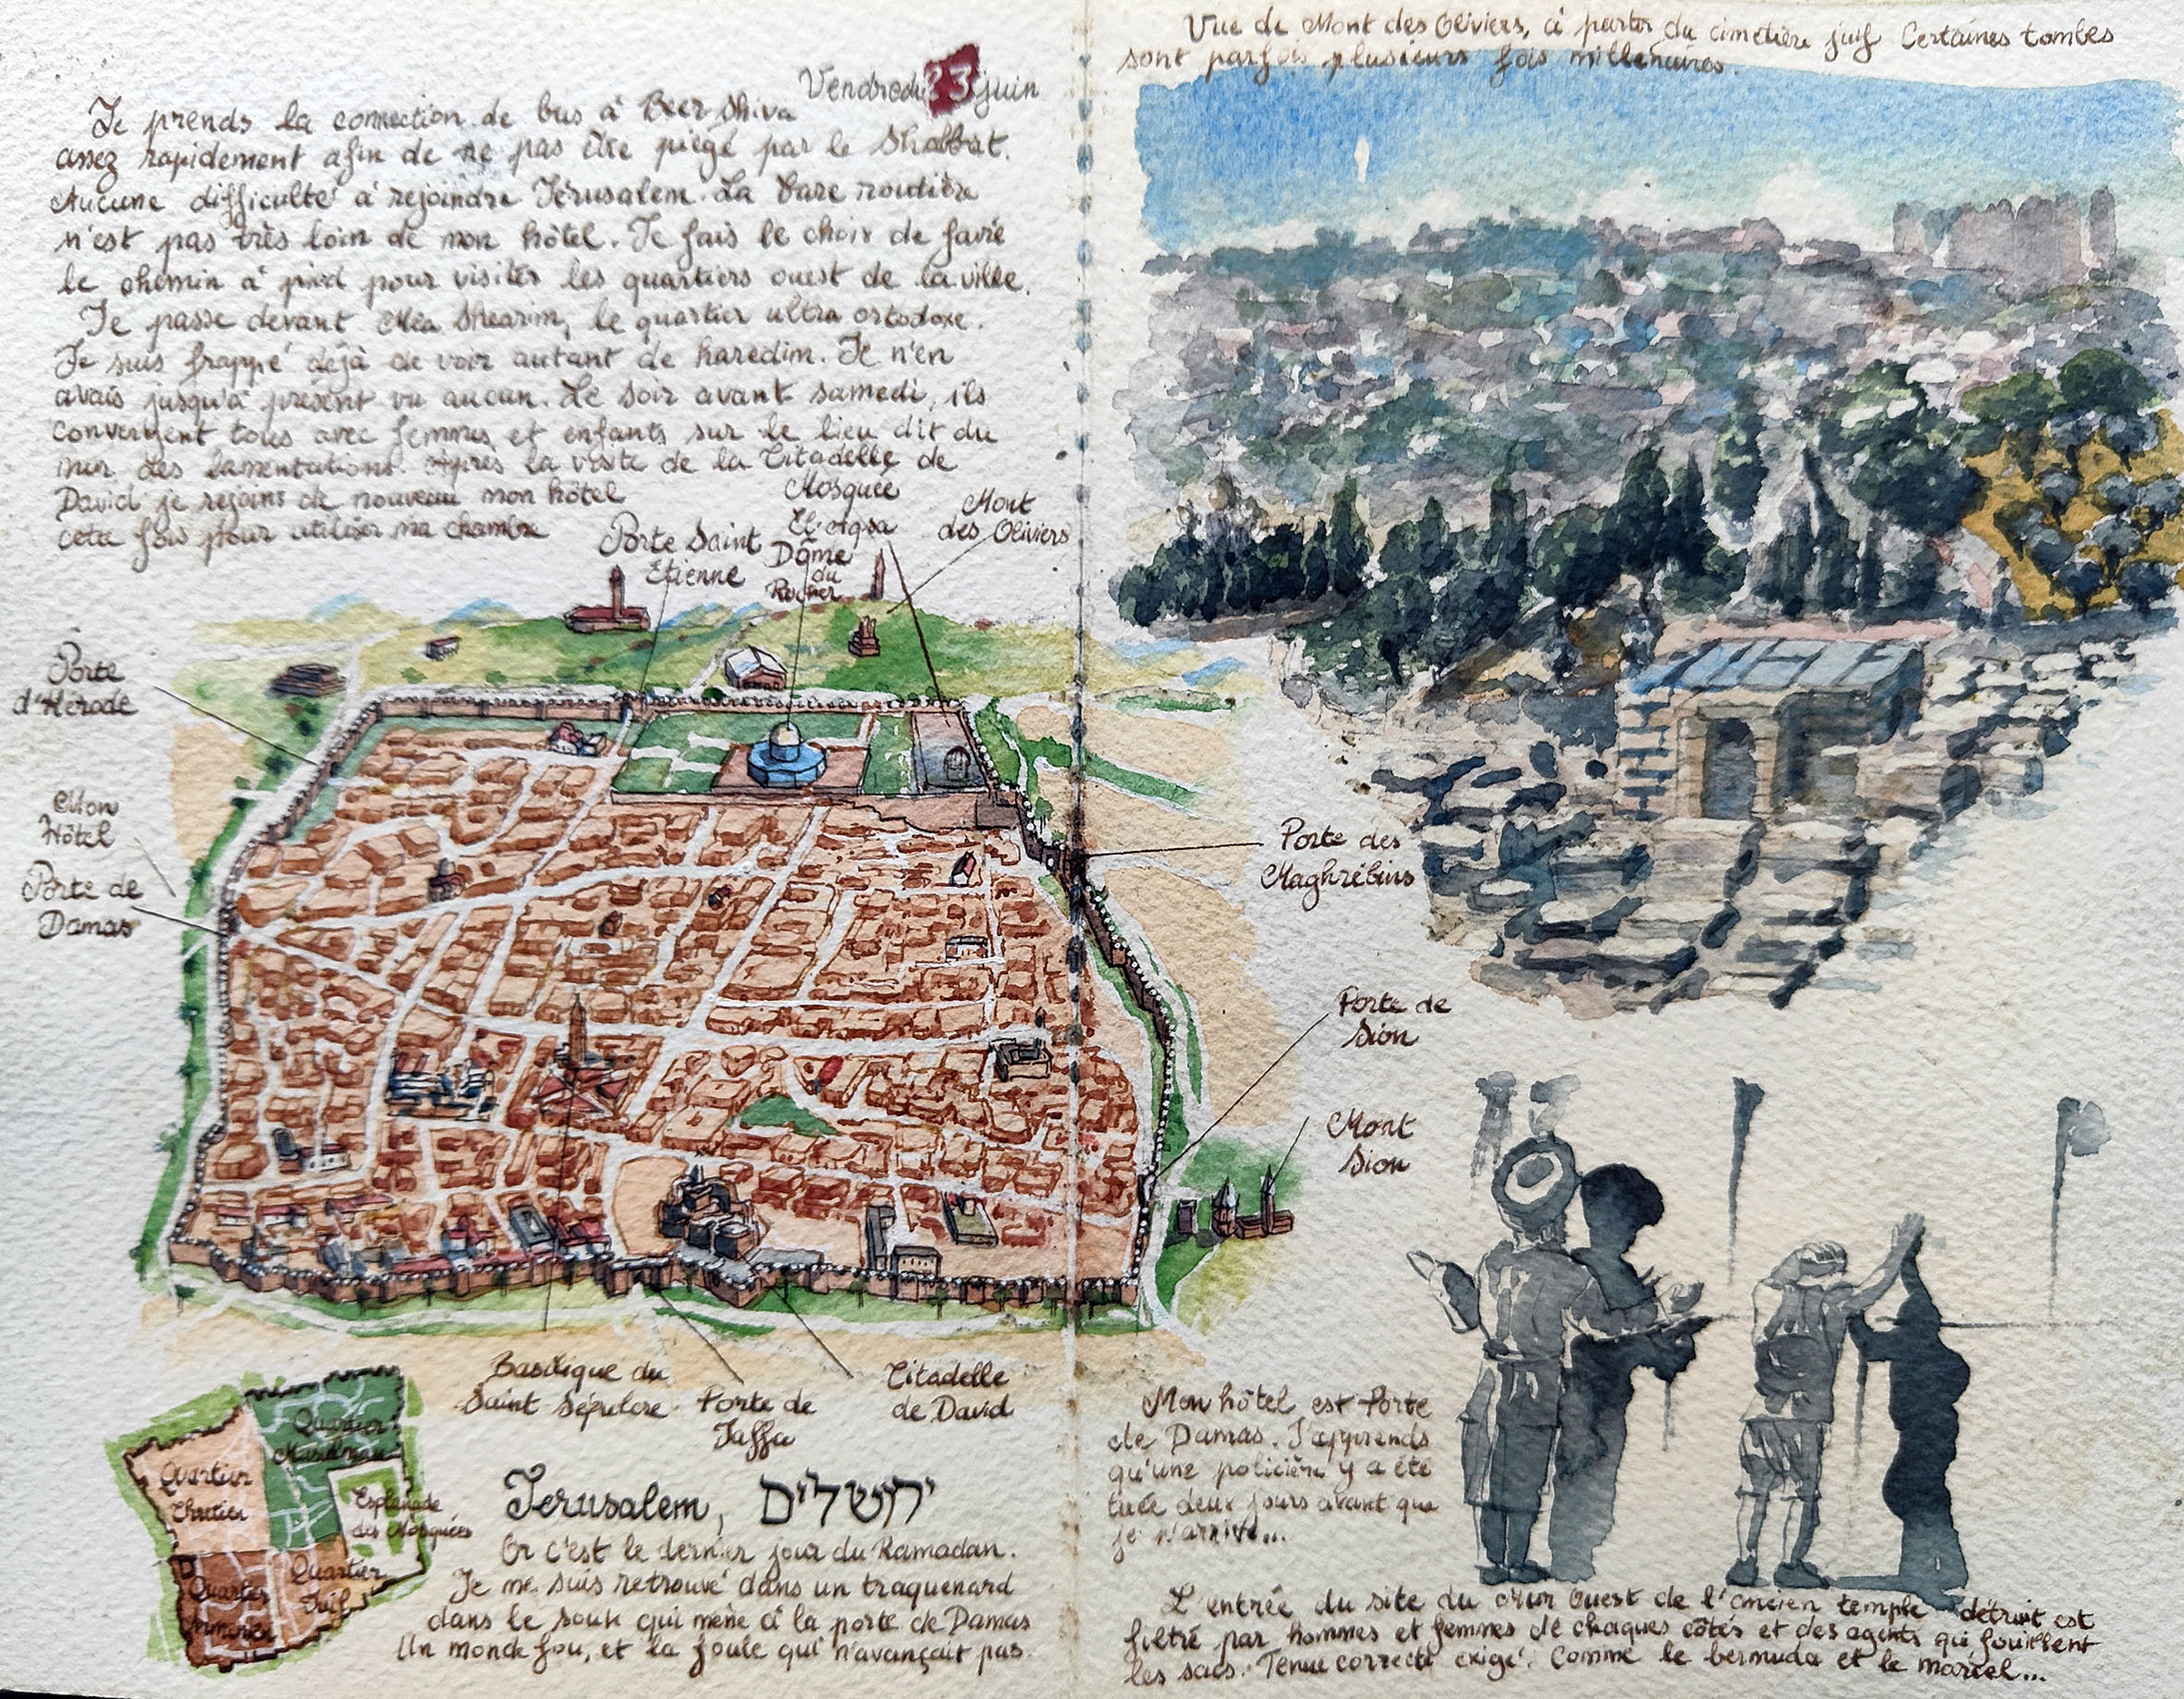 Vendredi 23 juin
Je prends la connection de bus à Beer Shiva
assez rapidement afin de ne pas être piégé par le Shabbat.
Aucune difficulté à rejoindre Jérusalem. La Gare routière
n'est pas très loin de mon hôtel. Je fais le choix de faire
le chemin à pied pour visiter les quartiers ouest de la ville.
Je passe devant Méa Shearim, le quartier ultra ortodoxe.
Je suis frappé déjà de voir autant de haredim. Je n'en
avais jusqu'à présent vu aucun. Le soir avant samedi, ils
convergent tous avec femmes et enfants sur le lieu dit du
mur des lamentations. Après la visite de la Citadelle de
David je rejoins de nouveau mon hôtel
cette fois pour utiliser ma chambre
Porte Saint
Etienne
Mosquée
El-Aqsa
Dôme
du
Rocher
Mont
des Oliviers
Porte
d'Hérode
Mon
Hôtel
Porte de
Damas
Porte des
Maghrébins
Porte de
Sion
Mont
Sion
Basilique du
Saint Sépulcre
Porte de
Jaffa
Citadelle
de David
Quartier
Musulman
Quartier
Chretien
Esplanade
des Mosquées
Quartier
Armenien
Quartier
Juif
Jerusalem, ירושלים
Or c'est le dernier jour du Ramadan.
Je me suis retrouvé dans un traquenard
dans le souk qui mène à la porte de Damas
Un monde fou, et la foule qui n'avançait pas.
Vue de Mont des Oliviers, à partir du cimetière juif Certaines tombes
sont parfois plusieurs fois millénaires.
Mon hôtel est Porte
de Damas. J'apprends
qu'une policière y a été
tuée deux jours avant que
je n'arrive...
L'entrée du site du Mur Ouest de l'ancien temple détruit est
filtré par hommes et femmes de chaques côtés et des agents qui fouillent
les sacs. Tenue correcte exigé. Comme le bermuda et le marcel...